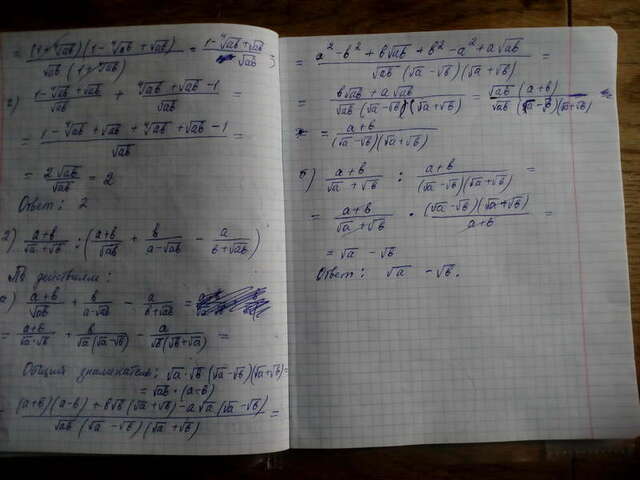 = (1+⁴√ab)(1-⁴√ab+√ab) / √ab (1+⁴√ab) = 1-⁴√ab+√ab / √ab
2) 1-⁴√ab+√ab / √ab + ⁴√ab+√ab-1 / √ab =
= 1-⁴√ab+√ab+⁴√ab+√ab-1 / √ab =
= 2√ab / √ab = 2
Ответ: 2
2) a+b / √a+√b : (a+b / √ab + b / a-√ab - a / b+√ab)
По действиям:
a) a+b / √ab + b / a-√ab - a / b+√ab =
= a+b / √a·√b + b / √a(√a-√b) - a / √b(√b+√a) =
Общий знаменатель: √a·√b(√a-√b)(√a+√b)=
= √ab·(a-b)
= (a+b)(a-b)+b√b(√a+√b)-a√a(√a-√b) / √ab(√a-√b)(√a+√b) =
= a²-b²+b√ab+b²-a²+a√ab / √ab(√a-√b)(√a+√b) =
= b√ab+a√ab / √ab(√a-√b)(√a+√b) = √ab(a+b) / √ab(√a-√b)(√a+√b) =
= a+b / (√a-√b)(√a+√b)
б) a+b / √a+√b : a+b / (√a-√b)(√a+√b) =
= a+b / √a+√b · (√a-√b)(√a+√b) / a+b =
= √a-√b
Ответ: √a-√b.